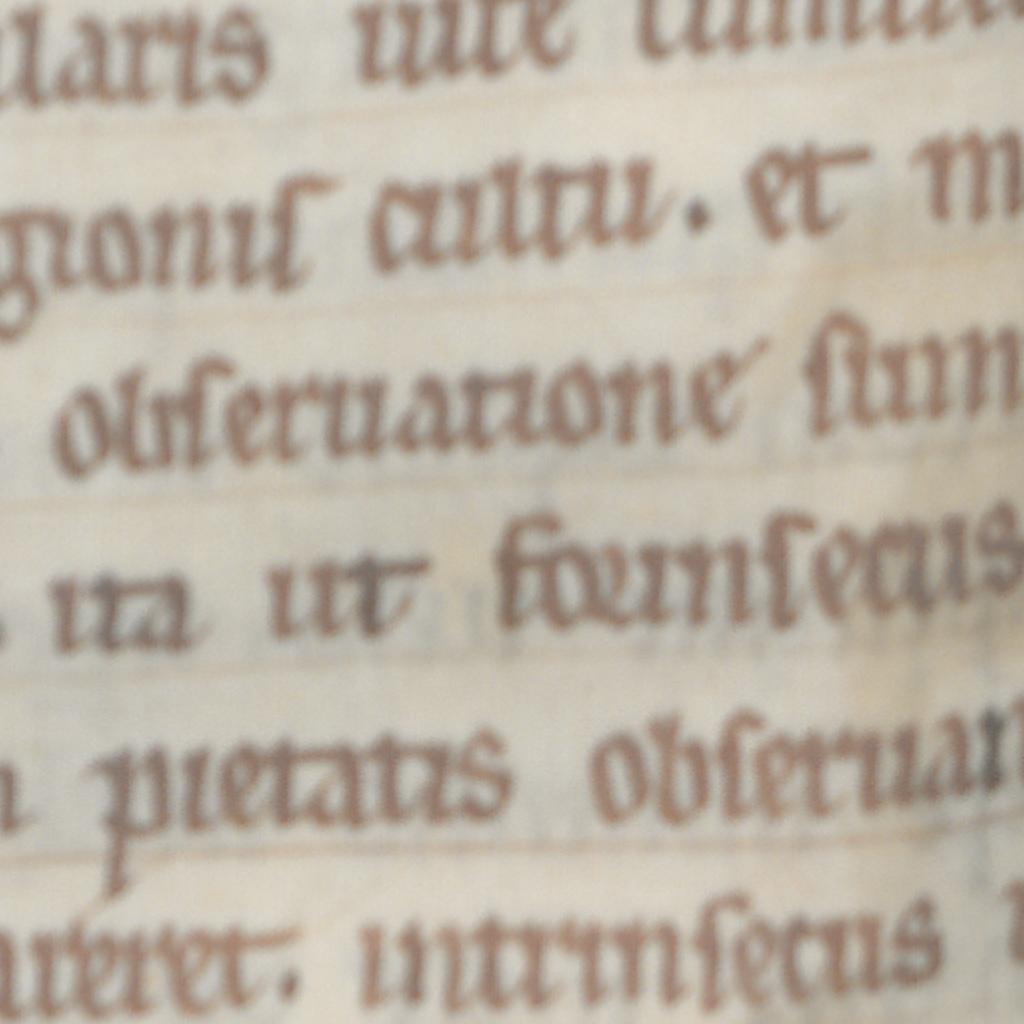 ularis uite
gioniſ cultu. et m
obſeruatione ſum
ita ut forinſecus
pietatis obſeruat
averet. intrinſecus